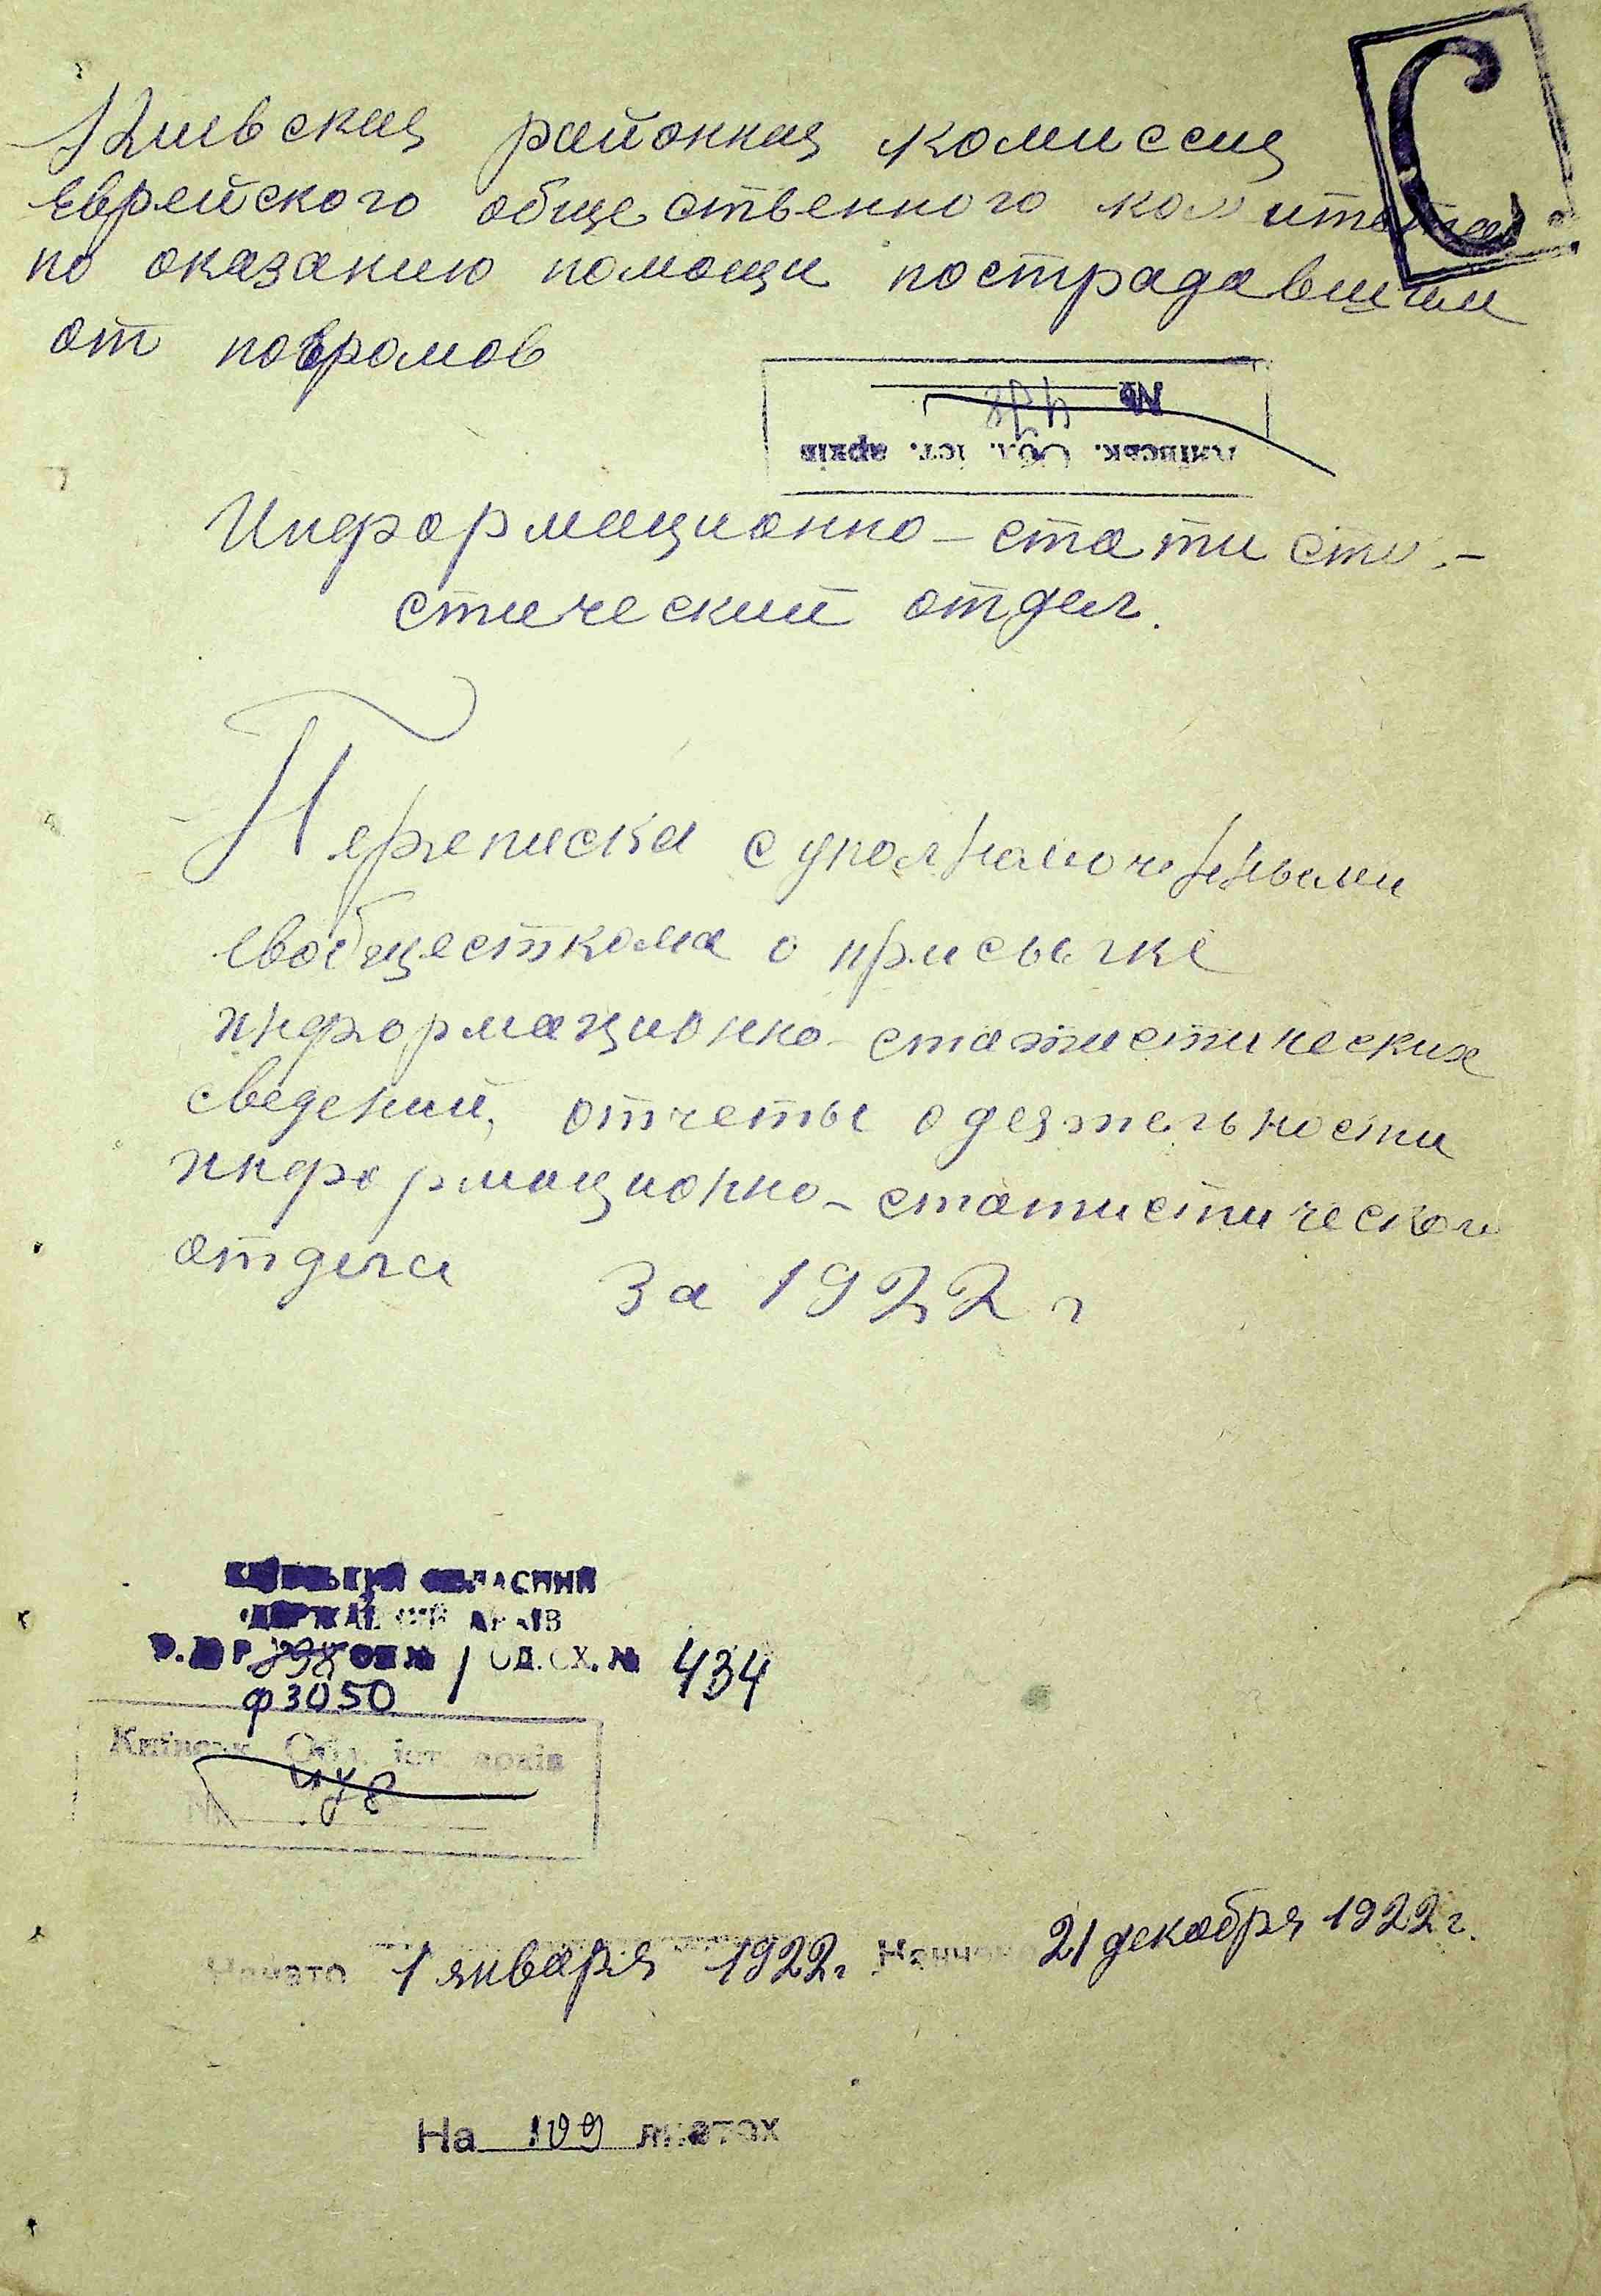 С
Киевская районная комиссия
Еврейского общественного комитета
по оказанию помощи пострадавшим
от погромов
№ 478
Київськ. Обл. іст. архів
Информационно-статисти-
стический отдел.
Переписка с уполномоченными
Евобщесткома о присылке
информационно-статистических
сведений, отчеты о деятельности
информационно-статистического
отдела за 1922 г
КИЇВСЬКИЙ ОБЛАСНИЙ
ДЕРЖАВНИЙ АРХІВ
Р 898 ОП № 1 ОД.СХ. № 434
ф 3050
Київськ. Обл. іст. архів
№ 478
Начато 1 января 1922 г. Кончено 21 декабря 1922 г.
На 109 листах